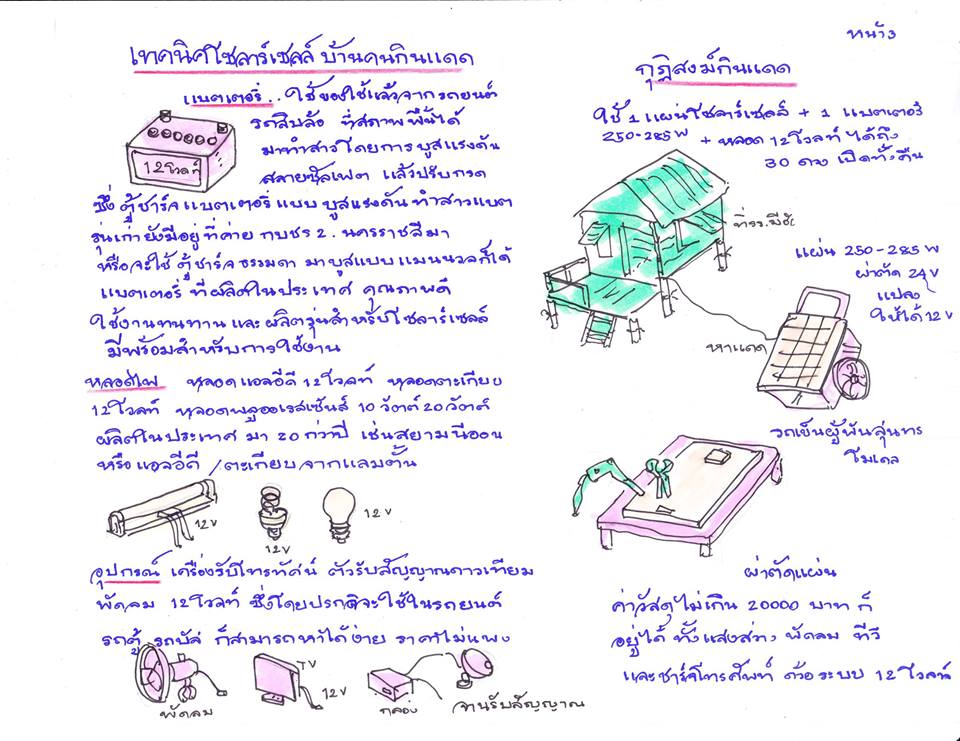 หน้า 3
เทคนิคโซลาร์เซลล์ บ้านคนกินแดด
แบตเตอรี่.. ใช้ของใช้แล้วจากรถยนต์
รถสิบล้อ ที่สภาพฟื้นได้
มาทำสาวโดยการบูสแรงดัน
สลายซัลเฟต แล้วปรับกรด
12โวลท์
ซึ่งตู้ชาร์จแบตเตอรี่แบบบูสแรงดันทำสาวแบต
รุ่นเก่ายังมีอยู่ที่ค่าย กบชร 2. นครราชสีมา
หรือจะใช้ตู้ชาร์จธรรมดา มาบูสแบบแมนนวลก็ได้
แบตเตอรี่ที่ผลิตในประเทศ คุณภาพดี
ใช้งานทนทานและผลิตรุ่นสำหรับโซลาร์เซลล์
มีพร้อมสำหรับการใช้งาน
หลอดไฟ หลอดแอลอีดี 12โวลท์ หลอดตะเกียบ
12โวลท์ หลอดฟลูออเรสเซ้นส์ 10วัตต์ 20วัตต์
ผลิตในประเทศ มา 20 กว่าปี เช่นสยามนีออน
หรือแอลอีดี /ตะเกียบจากแลมตั้น
12V
12V
12V
อุปกรณ์ เครื่องรับโทรทัศน์ ตัวรับสัญญาณดาวเทียม
พัดลม 12โวลท์ ซึ่งโดยปรกติจะใช้ในรถยนต์
รถตู้ รถบัส ก็สามารถหาได้ง่าย ราคาไม่แพง
TV
12V
พัดลม
กล่อง
จานรับสัญญาณ
กุฏิสงฆ์กินแดด
ใช้ 1 แผ่นโซลาร์เซลล์ + 1 แบตเตอรี่
250-285 W + หลอด 12โวลท์ ได้ถึง
30 ดวง เปิดทั้งคืน
ที่รร.มีชัย
แผ่น 250-285 W
ผ่าตัด 24V
แปลง
ให้ได้ 12V
หาแดด
รถเข็นผู้พันสุนทร
โมเดล
ผ่าตัดแผ่น
ค่าวัสดุไม่เกิน 20000 บาท ก็
อยู่ได้ ทั้งแสงสว่าง พัดลม ทีวี
และชาร์จโทรศัพท์ ด้วยระบบ 12โวลท์